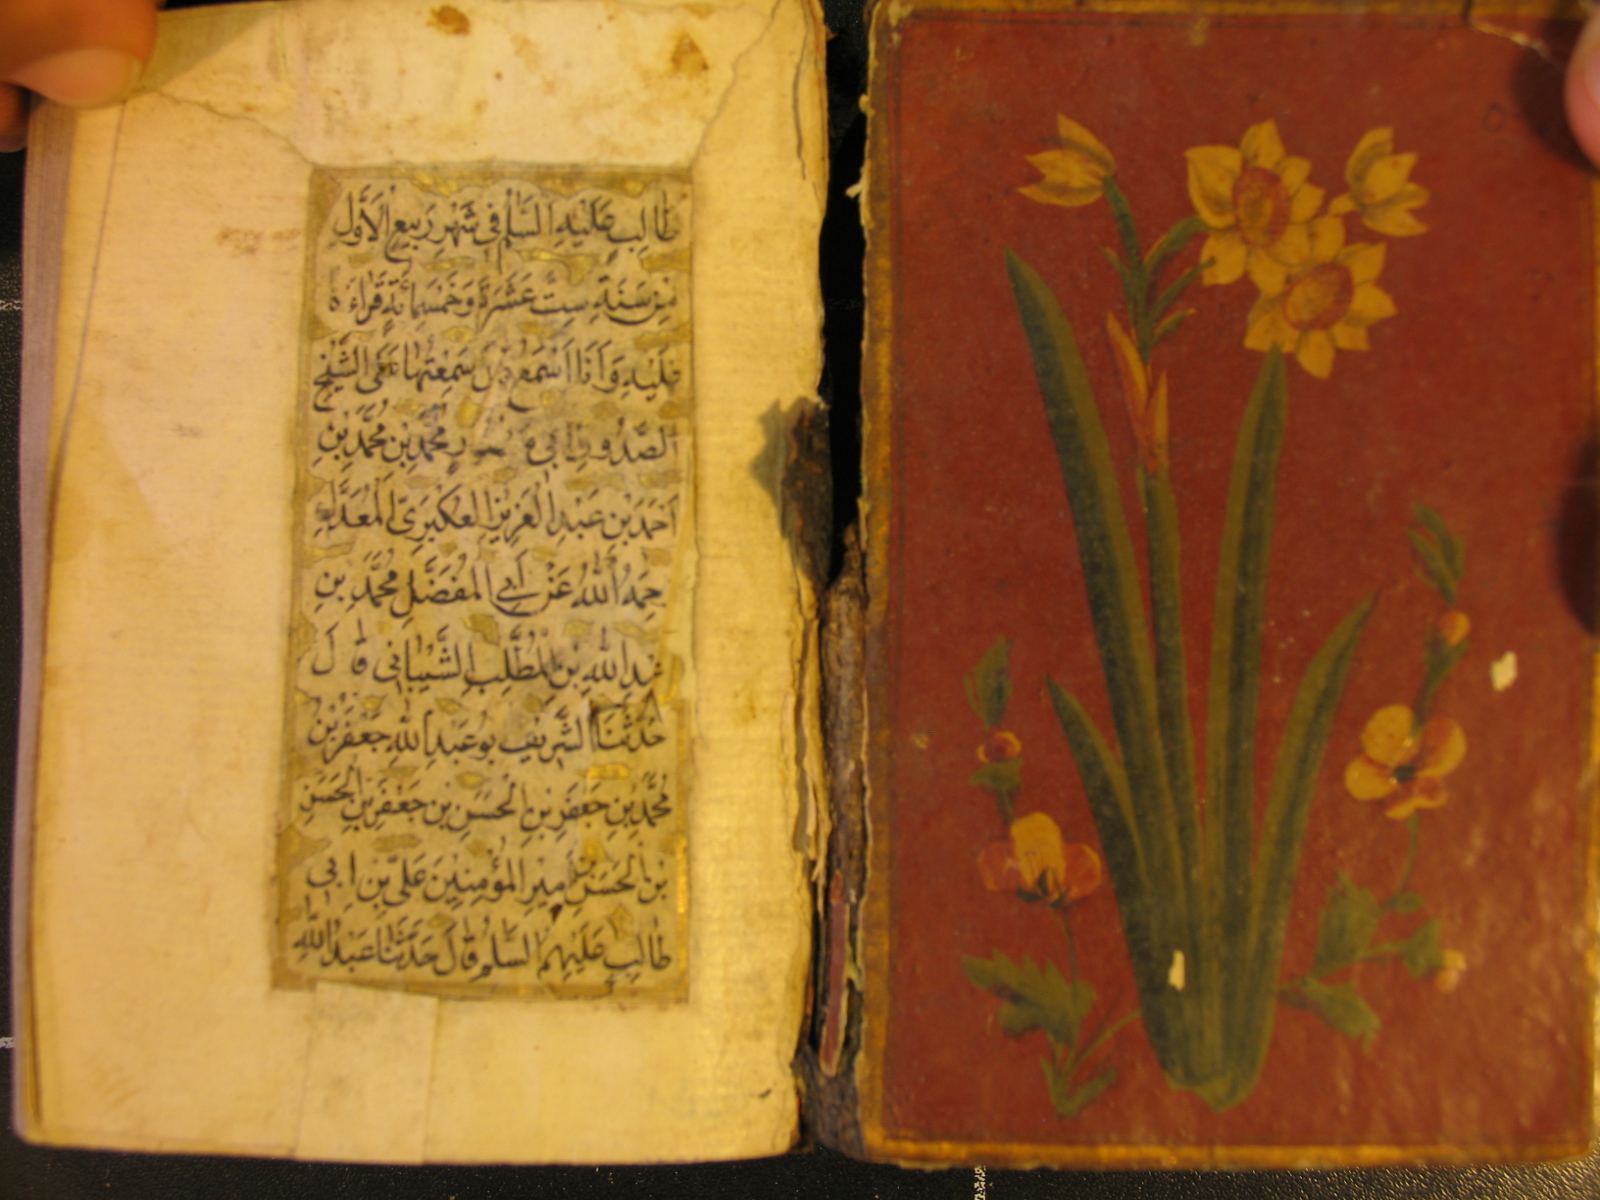 طَالِبٍ عَلَيْهِ السَّلٰمُ فِي شَهْرِ رَبِيعِ الْاَوَّلِ
مِنْ سَنَةِ سِتَّ عَشَرَةَ وَخَمْسَمِائَةٍ قَرَاءَةً
عَلَيْهِ وَاَنَا اَسْمَعُ قَالَ سَمِعْتُهَا عَنِ الشَّيْخِ
الصَّدُوقِ اَبِي مُحَمَّدِ بْنِ مُحَمَّدِ بْنِ
اَحْمَدَ بْنِ عَبْدِ الْعَزِيزِ الْعُكْبَرِيِّ الْمُعَدَّلِ
حِمَهُ اللّٰهُ عَنْ اَبِي الْمُفَضَّلِ مُحَمَّدِ بْنِ
عَبْدِ اللّٰهِ بْنِ الْمُطَّلِبِ الشَّيْبَانِي قَالَ
حَدَّثَنَا الشَّرِيفُ بُو عَبْدِ اللّٰهِ جَعْفَرُ بْنُ
مُحَمَّدِ بْنِ جَعْفَرِ بْنِ الْحَسَنِ بْنِ جَعْفَرِ بْنِ الْحَسَنِ
بْنِ الْحَسَنِ بْنِ اَمِيرِ الْمُؤْمِنِينَ عَلِيِّ بْنِ اَبِي
طَالِبٍ عَلَيْهِمُ السَّلٰمُ قَالَ حَدَّثَنَا عَبْدُ اللّٰهِ